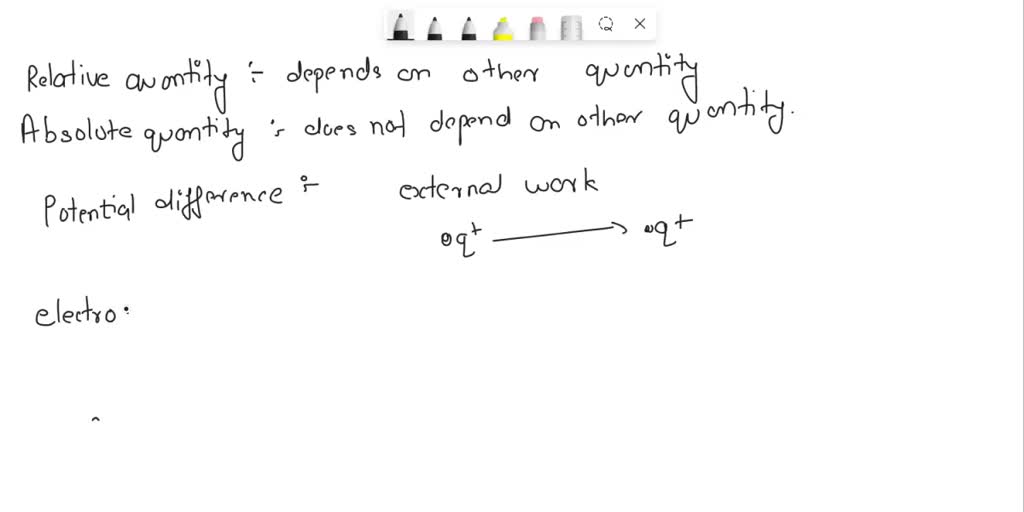 Relative quantity :- depends on other quantity
Absolute quantity :- does not depend on other quantity.
Potential difference :- external work
q+ → q+
electro.